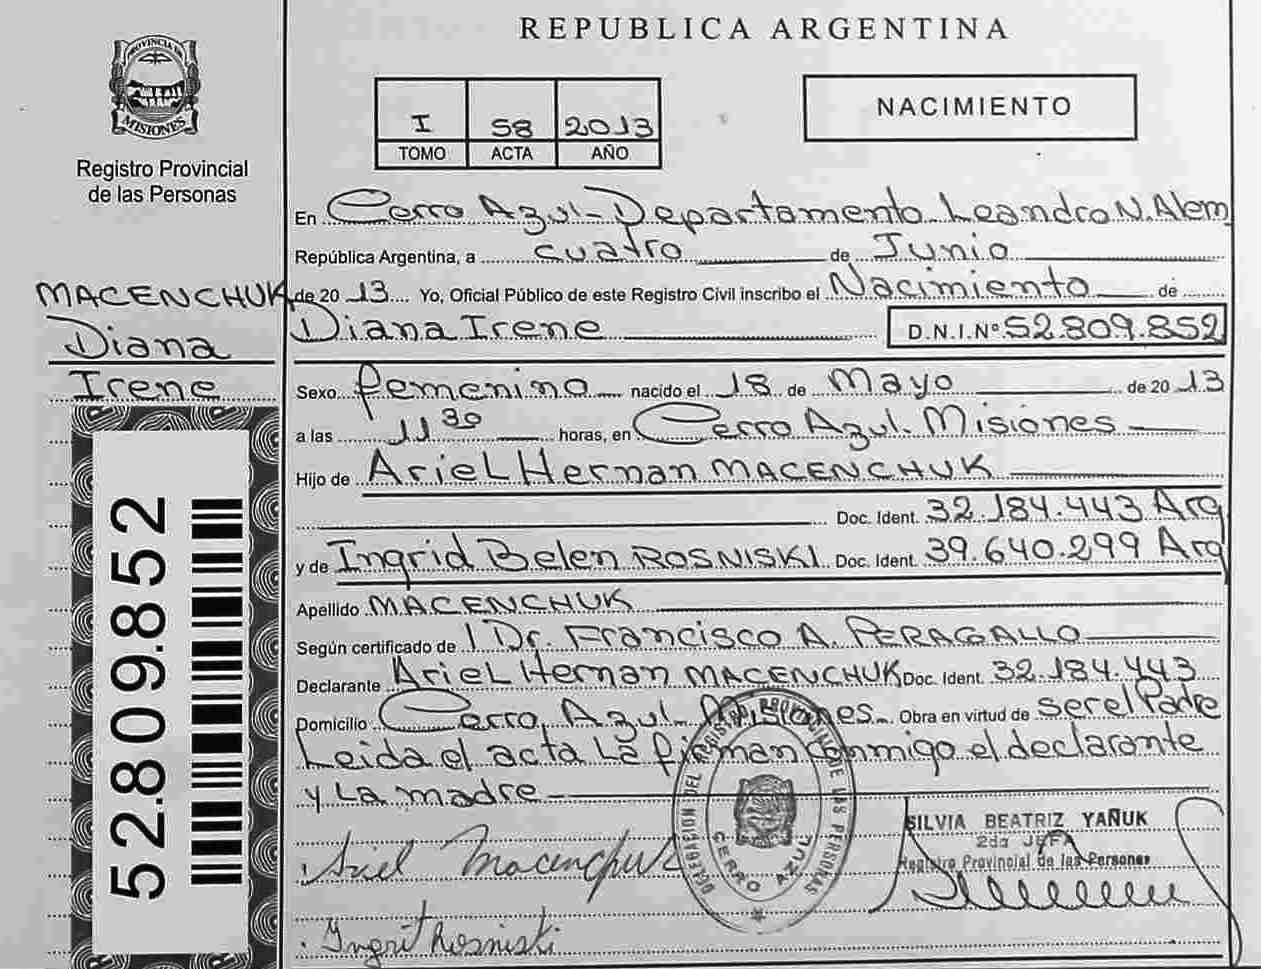 REPUBLICA ARGENTINA
PROVINCIA DE
MISIONES
Registro Provincial
de las Personas
I 58 2013
TOMO ACTA AÑO
NACIMIENTO
En Cerro Azul - Departamento Leandro N. Alem
República Argentina, a cuatro de Junio
de 20 13 Yo, Oficial Público de este Registro Civil inscribo el Nacimiento de
Diana Irene D.N.I.Nº 52.809.852
MACENCHUK
Diana
Irene
52.809.852
Sexo femenino nacido el 18 de Mayo de 20 13
a las 11 30 horas, en Cerro Azul. Misiones
Hijo de Ariel Hernan MACENCHUK
Doc. Ident. 32.184.443 Arg
y de Ingrid Belen ROSNISKI Doc. Ident. 39.640.299 Arg
Apellido MACENCHUK
Según certificado de Dr. Francisco A. PERAGALLO
Declarante Ariel Hernan MACENCHUK Doc. Ident. 32.184.443
Domicilio Cerro Azul - Misiones Obra en virtud de ser el Padre
Leida el acta La firman conmigo el declarante
y La madre
DELEGACION DEL REGISTRO PROVINCIAL DE LAS PERSONAS
CERRO AZUL
SILVIA BEATRIZ YAÑUK
2da JEFA
Registro Provincial de las Personas
Ariel Macenchuk
Ingrit Rosniski